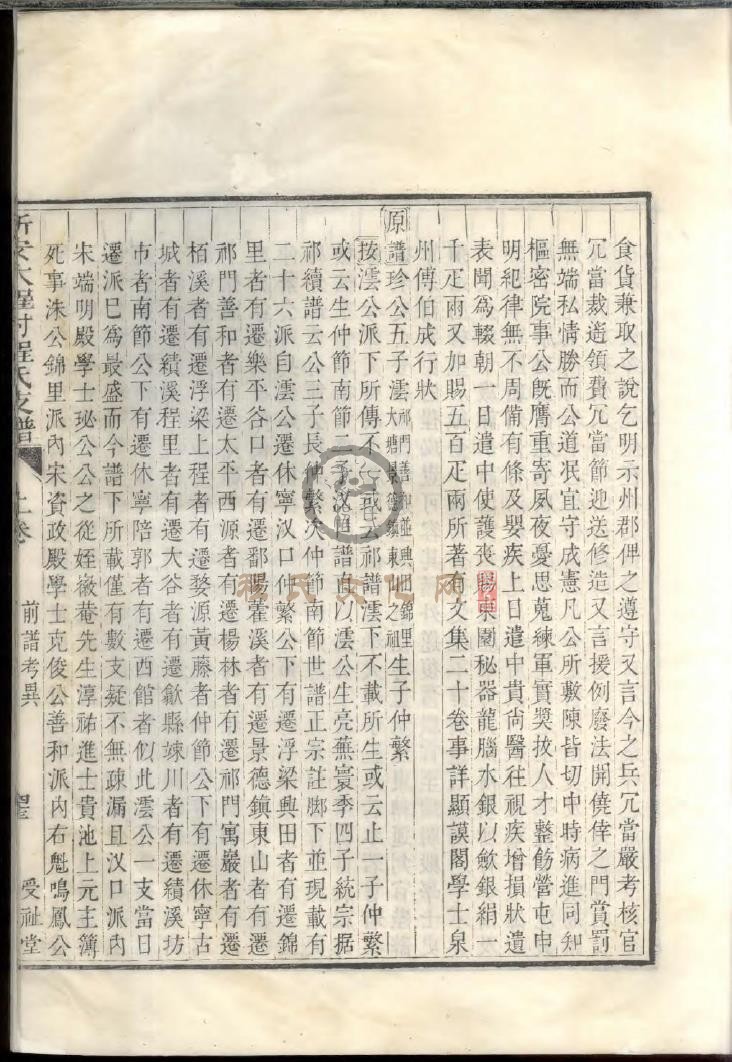 食貨兼取之說乞明示州郡俾之遵守又言今之兵冗當嚴考核官
冗當裁遴領費冗當節迎送修造又言援例廢法開僥倖之門賞罰
無端私情勝而公道泯宜守成憲凡公所敷陳皆切中時病進同知
樞密院事公旣膺重寄夙夜憂思蒐練軍實奬拔人才整飭營屯申
明紀律無不周備有條及嬰疾上日遣中貴尚醫往視疾增損狀遺
表聞爲輟朝一日遣中使護喪賜東園秘器龍腦水銀以斂銀絹一
千疋兩又加賜五百疋兩所著有文集二十卷事詳顯謨閣學士泉
州傅伯成行狀
原譜珍公五子澐祁門善和並興田錦里大塘景德鎮東山之祖生子仲繁
按澐公派下所傳不 或云祁譜澐下不載所生或云止一子仲繁
或云生仲節南節二子汊口譜直以澐公生亮蕪寰季四子統宗据
祁續譜云公三子長仲繁次仲節南節世譜正宗註脚下並現載有
二十六派自澐公遷休寧汊口仲繁公下有遷浮梁興田者有遷錦
里者有遷樂平谷口者有遷鄱陽藿溪者有遷景德鎮東山者有遷
祁門善和者有遷太平西源者有遷楊林者有遷祁門寓巖者有遷
栢溪者有遷浮梁上程者有遷婺源黃藤者仲節公下有遷休寧古
城者有遷績溪程里者有遷大谷者有遷歙縣竦川者有遷績溪坊
市者南節公下有遷休寧陪郭者有遷西館者似此澐公一支當日
遷派巳爲最盛而今譜下所載僅有數支疑不無疎漏且汊口派內
宋端明殿學士珌公公之從姪徽菴先生淳祐進士貴池上元主簿
死事洙公錦里派內宋資政殿學士克俊公善和派內右魁鳴鳳公
新安大程村程氏支譜 上卷 前譜考異 受祉堂
程氏文化网